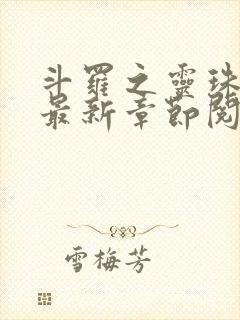 斗羅之靈珠
最新章節閱
雪梅芳